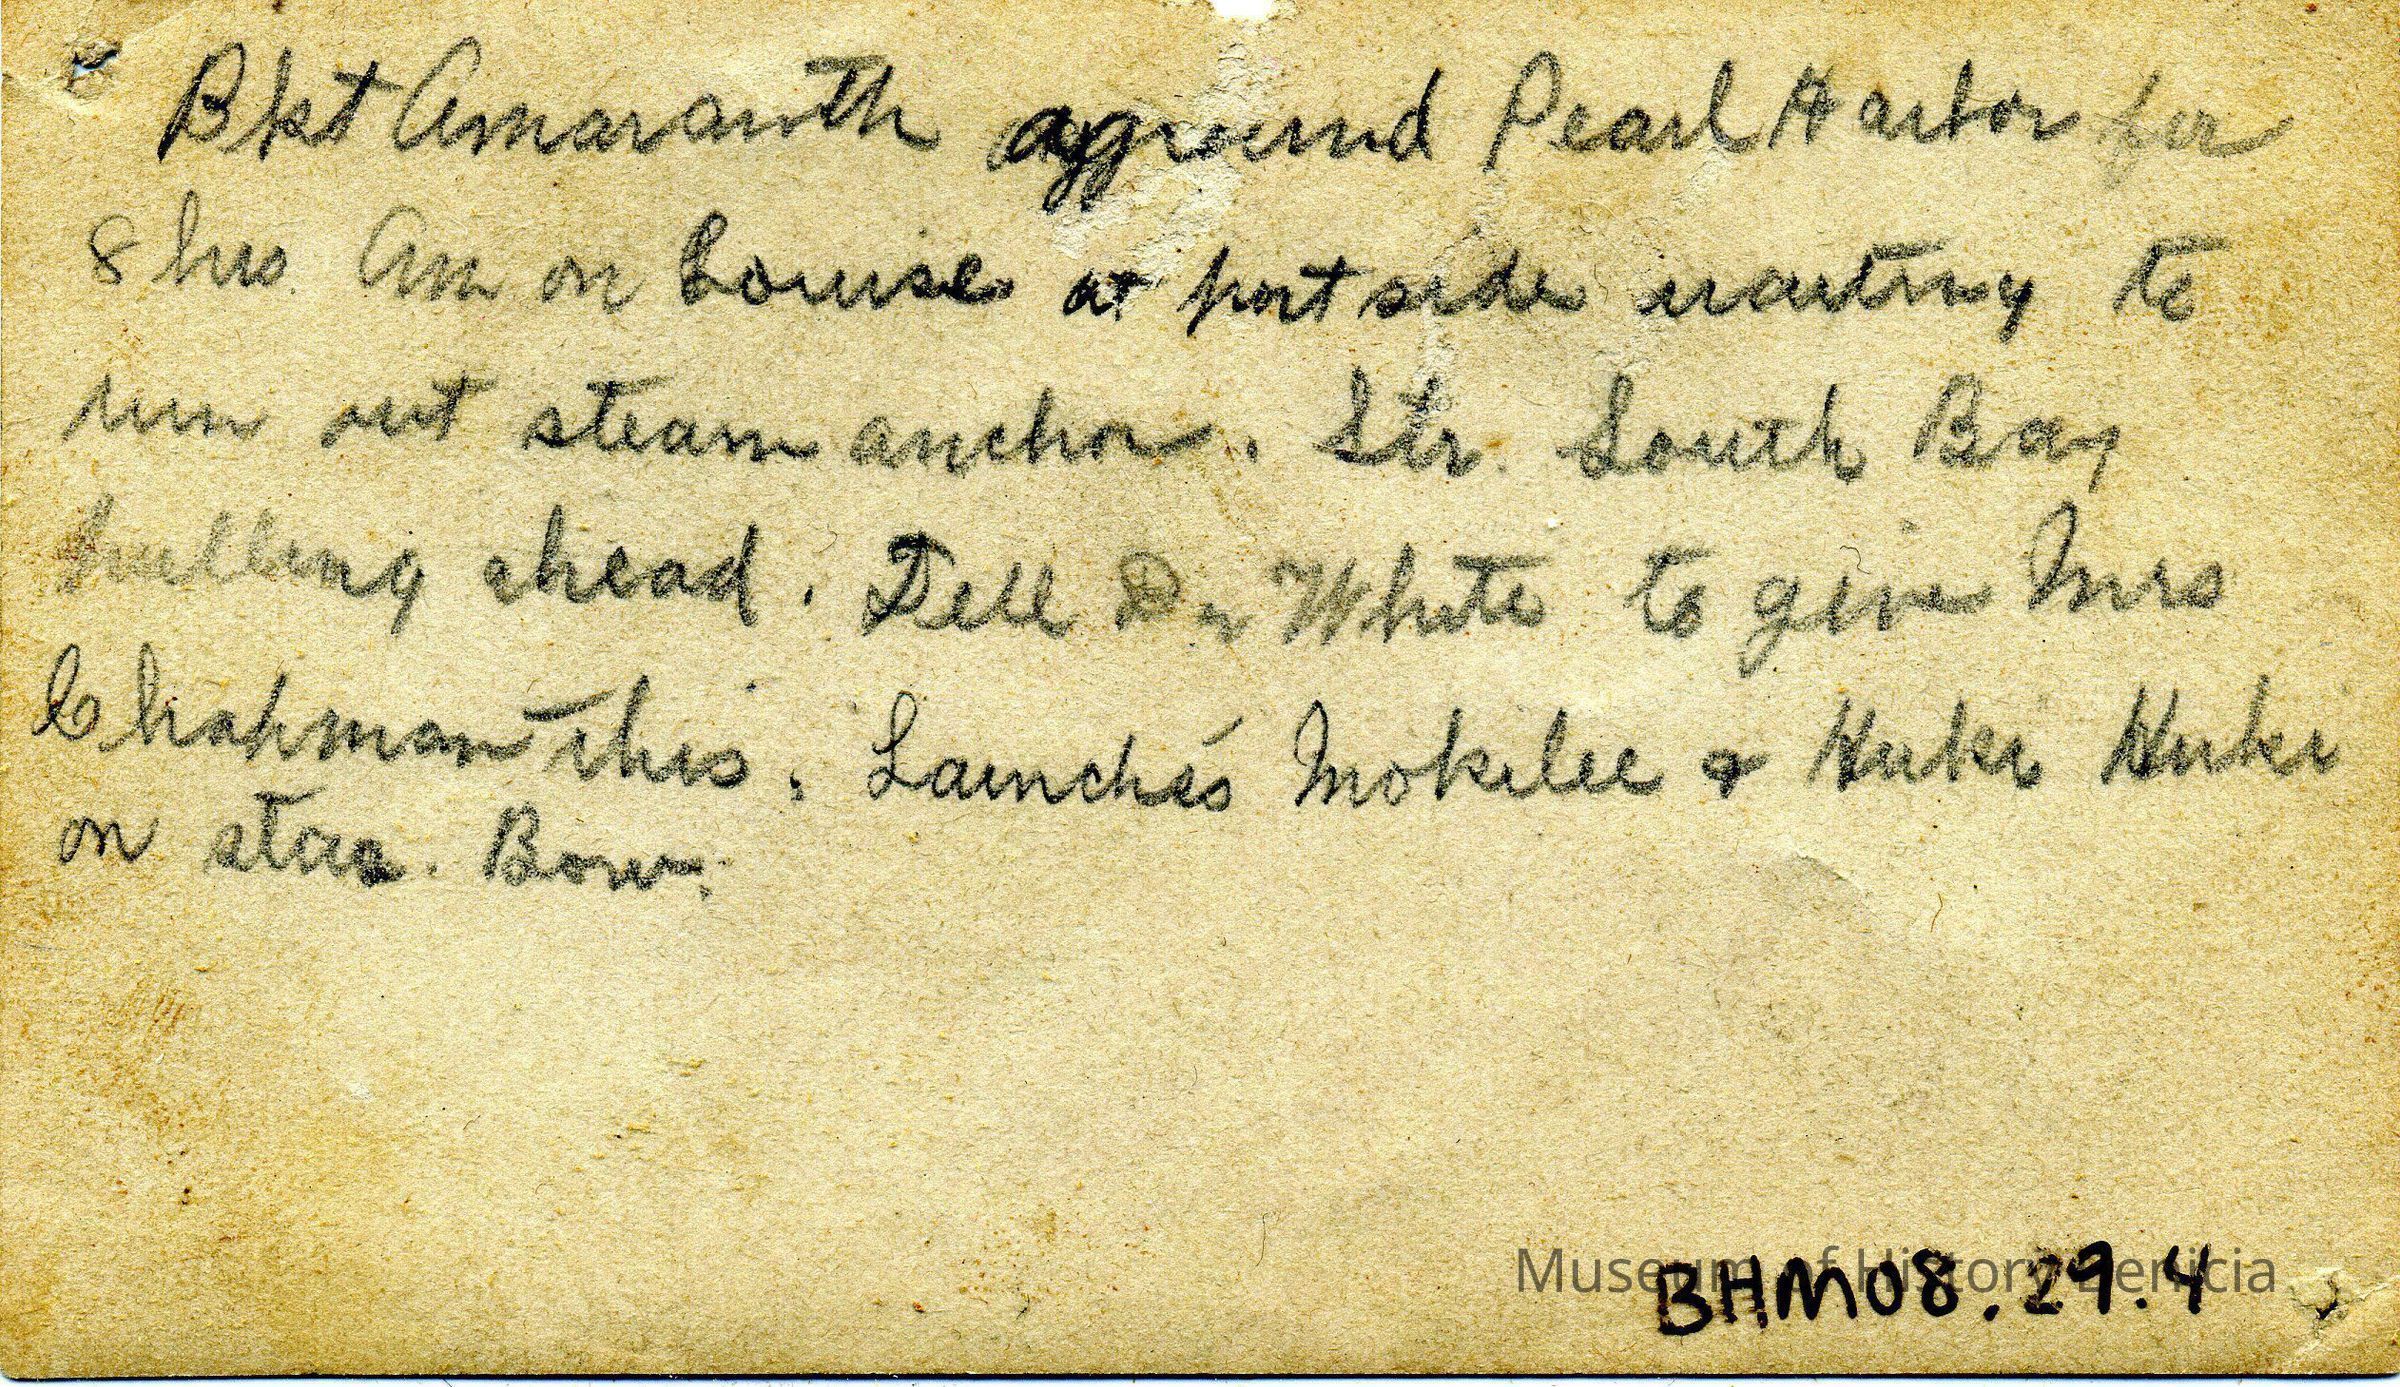 Bkt Amaranth aground Pearl Harbor for
8 hrs. Am on Louise at port side waiting to
run out steam anchor. Str. South Bay
pulling ahead. Tell Dr White to give Mrs
Chapman this. Launches Mokilee & Huki Huki
on star. Bow.
Museum of History Benicia
BHM08.29.4